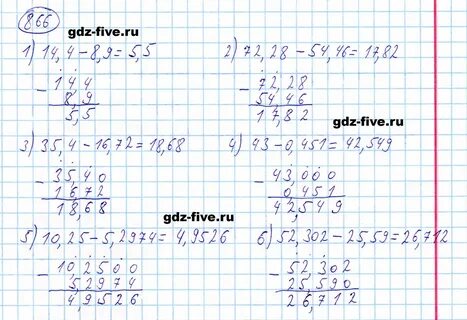 866
gdz-five.ru
1) 14,4 - 8,9 = 5,5
2) 72,28 - 54,46 = 17,82
- 14,4
8,9
5,5
- 72,28
54,46
17,82
gdz-five.ru
3) 35,4 - 16,72 = 18,68
4) 43 - 0,451 = 42,549
- 35,40
16,72
18,68
- 43,000
0,451
42,549
gdz-five.ru
5) 10,25 - 5,2974 = 4,9526
6) 52,302 - 25,59 = 26,712
- 10,2500
5,2974
4,9526
- 52,302
25,590
26,712
gdz-five.ru